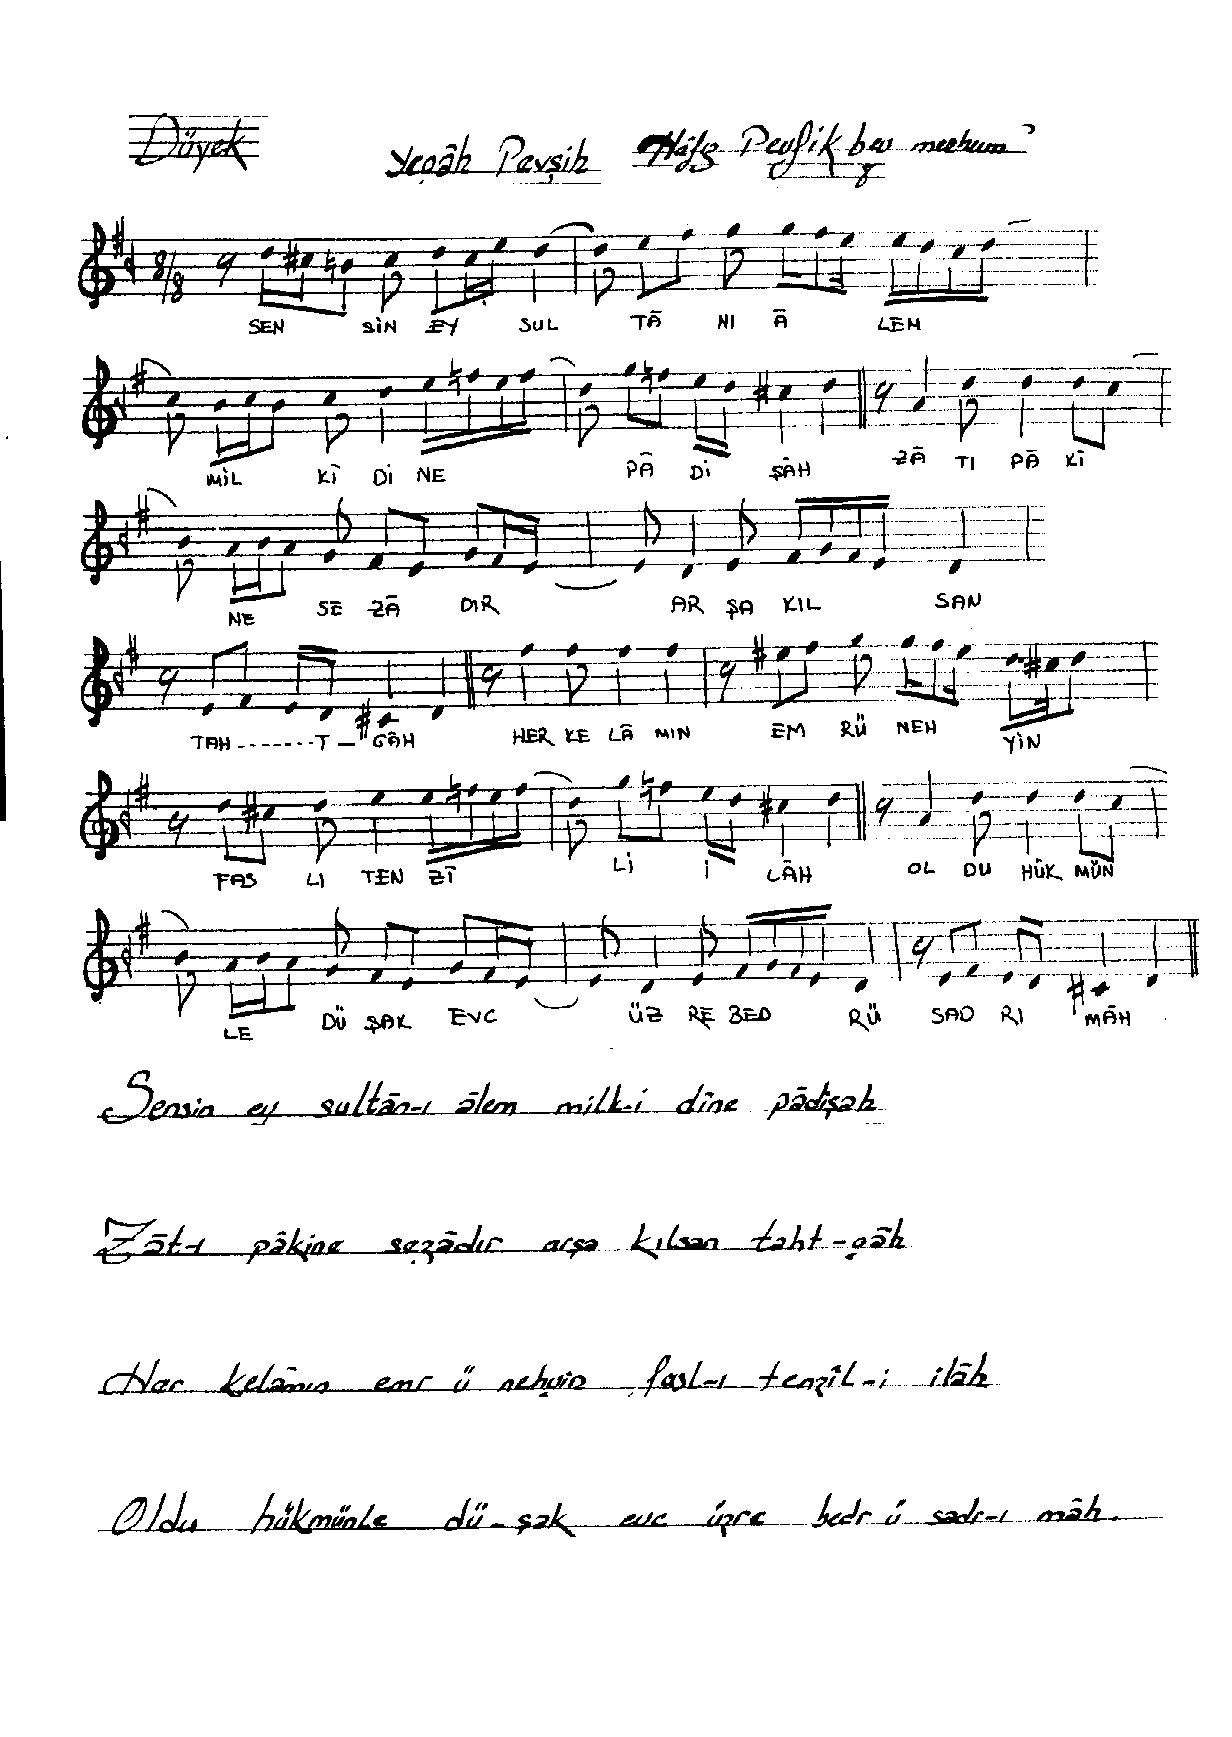 Düyek Yegâh Tevşih Hâfız Tevfik bey merhum
8/8
SEN SİN EY SUL TĀ NI Ā LĒM
MİL KĪ Dİ NE PĀ Dİ ŞĀH ZĀ TI PĀ KĪ
NE SE ZĀ DIR AR ŞA KIL SAN
TAH-------T-GĀH HER KE LĀ MIN EM RÜ NEH YİN
FAS LI TEN ZĪ Lİ İ LĀH OL DU HÜK MÜN
LE DÜ ŞAK EVC ÜZ RE BED RÜ SAD RI MĀH
Sensin ey sultān-ı ālem milk-i dīne pādişah
Zāt-ı pākine sezādır arşa kılsan taht-gāh
Her kelāmın emr ü nehyin fasl-ı tenzîl-i ilāh
Oldu hükmünle dü-şak evc üzre bedr ü sadr-ı māh.